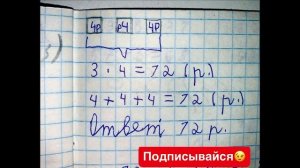 4р р4 4р
3 · 4 = 12 (р.)
4 + 4 + 4 = 12 (р.)
Ответ 12 р.
Подписывайся😉